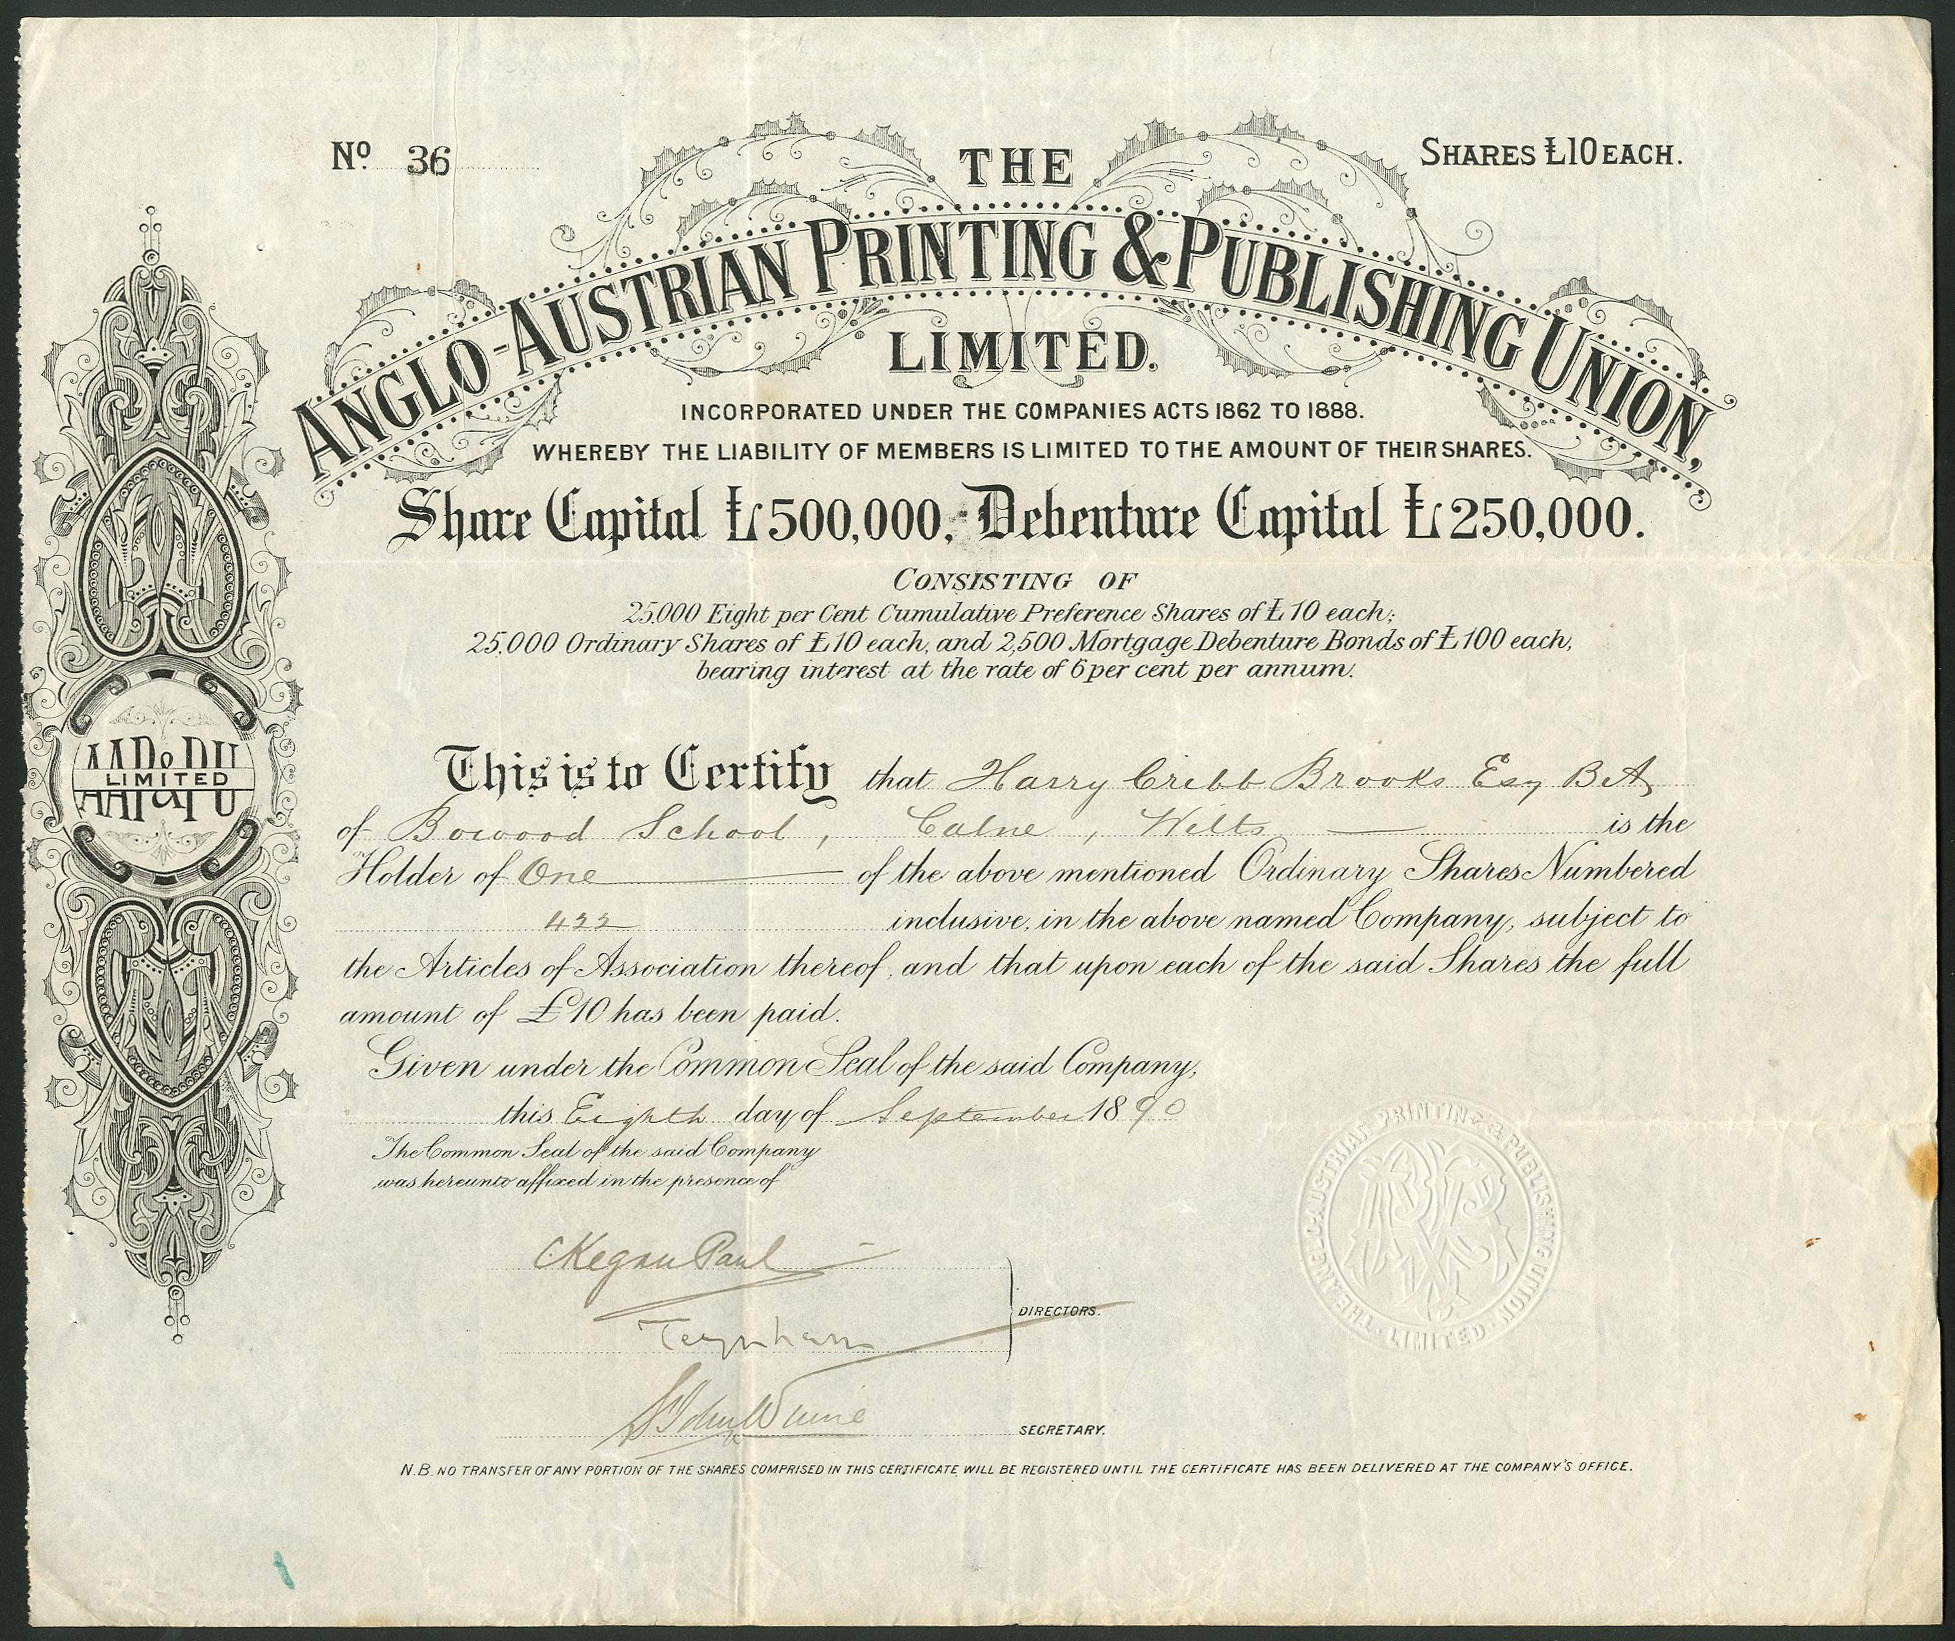 No 36
SHARES £10 EACH.
THE
ANGLO-AUSTRIAN PRINTING & PUBLISHING UNION,
LIMITED.
INCORPORATED UNDER THE COMPANIES ACTS 1862 TO 1888.
WHEREBY THE LIABILITY OF MEMBERS IS LIMITED TO THE AMOUNT OF THEIR SHARES.
Share Capital £500,000, Debenture Capital £250,000.
CONSISTING OF
25,000 Eight per Cent Cumulative Preference Shares of £10 each;
25,000 Ordinary Shares of £10 each, and 2,500 Mortgage Debenture Bonds of £100 each,
bearing interest at the rate of 6 per cent per annum.
AAP&PU
LIMITED
This is to Certify that Harry Cribb Brooks Esq BA
of Bowood School, Calne, Wilts is the
Holder of One of the above mentioned Ordinary Shares Numbered
422 inclusive, in the above named Company, subject to
the Articles of Association thereof, and that upon each of the said Shares the full
amount of £10 has been paid.
Given under the Common Seal of the said Company,
this Eighth day of September 1890
The Common Seal of the said Company
was hereunto affixed in the presence of
C Kegan Paul
Teynham
DIRECTORS.
SECRETARY.
THE ANGLO-AUSTRIAN PRINTING & PUBLISHING UNION LIMITED
N.B. NO TRANSFER OF ANY PORTION OF THE SHARES COMPRISED IN THIS CERTIFICATE WILL BE REGISTERED UNTIL THE CERTIFICATE HAS BEEN DELIVERED AT THE COMPANY'S OFFICE.